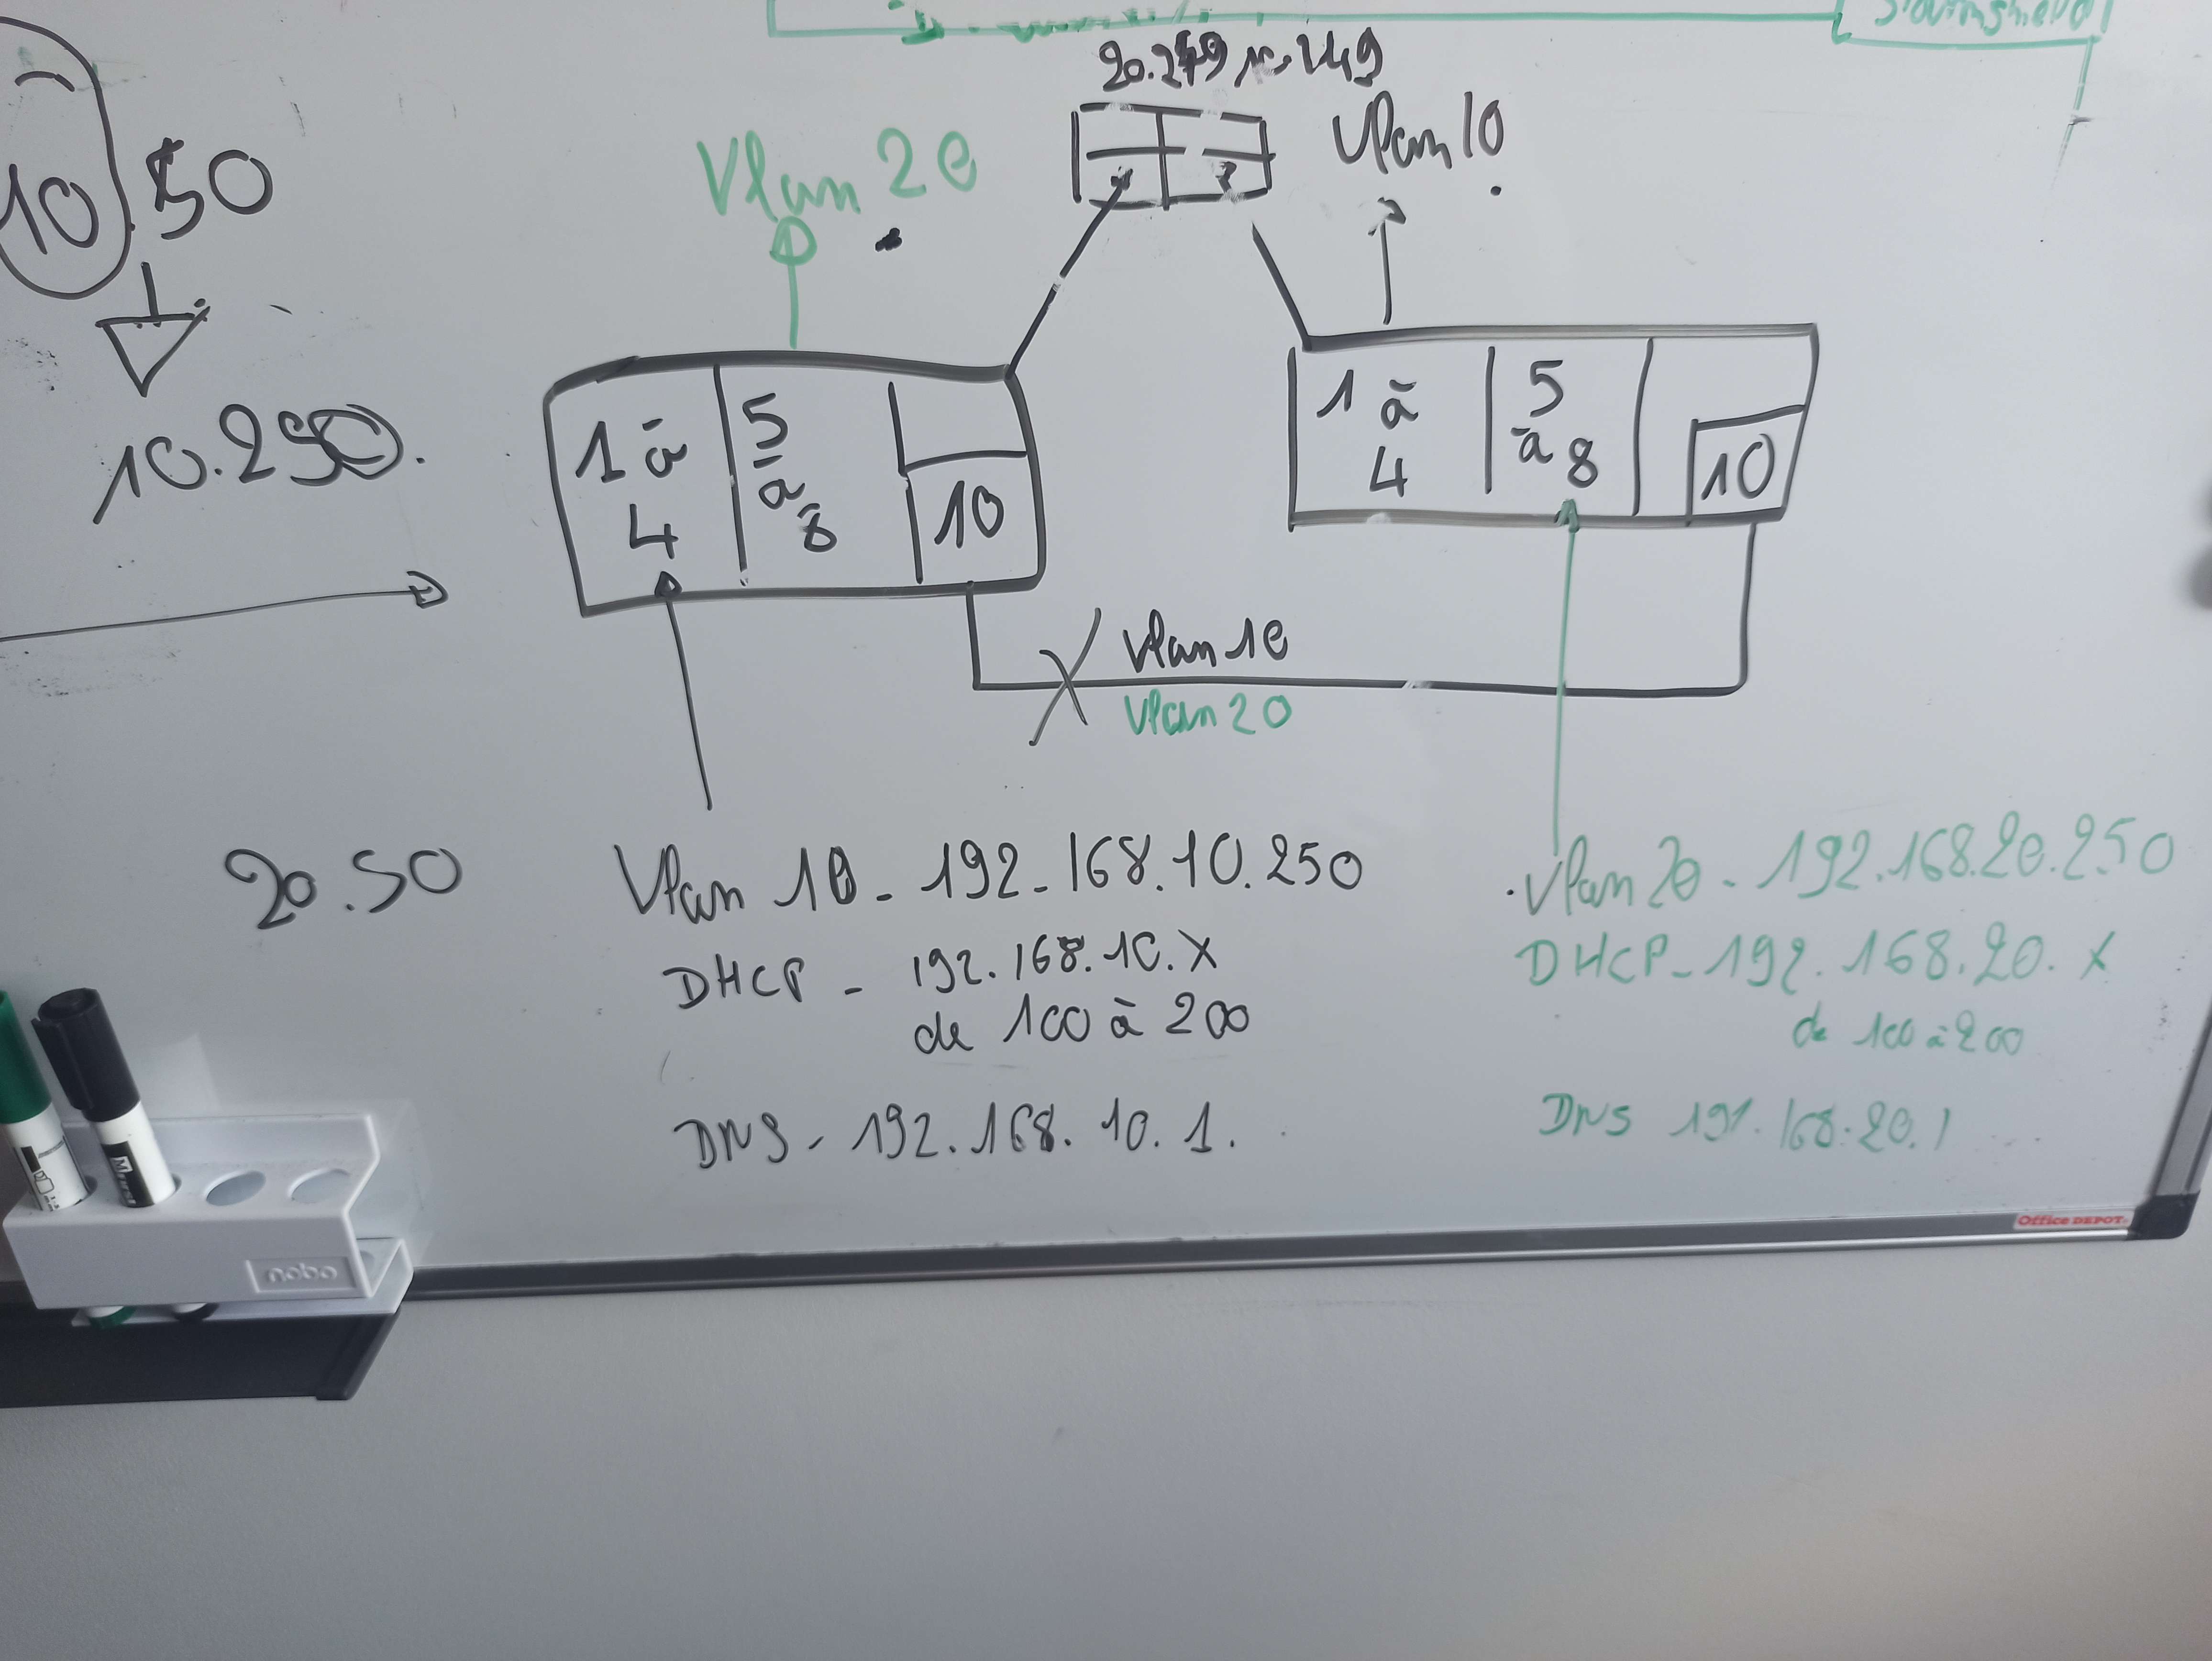 20.249 10.249
Vlan 20
Vlan 10
10.50
10.250.
1 à
4
5
à
8
10
1 à
4
5
à 8
10
Vlan 10
Vlan 20
20.50
Vlan 10 - 192-168.10.250
DHCP - 192.168.10.X
de 100 à 200
DNS - 192.168.10.1.
Vlan 20 - 192.168.20.250
DHCP - 192.168.20.X
de 100 à 200
DNS 192.168.20.1
Office DEPOT.
nobo